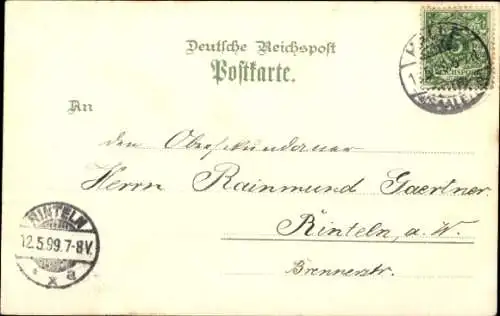 Deutsche Reichspost
Postkarte.
An
den Obersekundaner
Herrn Rainmund Gaertner.
Rinteln, a. W.
Brennerstr.
HALLE
(SAALE)
5
REICHSPOST
RINTELN
12.5.99.7-8V.
* x a